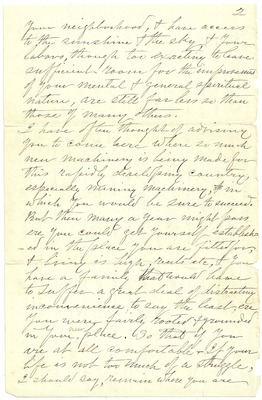 2
your neighborhood, & have access
to the sunshine & the sky, & your
labors, though too exacting to leave
sufficient room for the improvement
of your mental & general spiritual
nature, are still far less so than
those of many others.
I have often thought of advising
you to come here where so much
new machinery is being made for
this rapidly developing country,
especially mining machinery, & in
which you would be sure to succeed.
But then many a year might pass
ere you could get yourself establish
-ed in the place you are fitted for,
& living is high, rents etc, & you
have a family that would have
to suffer a great deal of distractory
inconvenience to say the least, ere
you were fairly rooted & grounded
in your new place. So that if you
are at all comfortable & if your
life is not too much of a struggle,
I should say, remain where you are